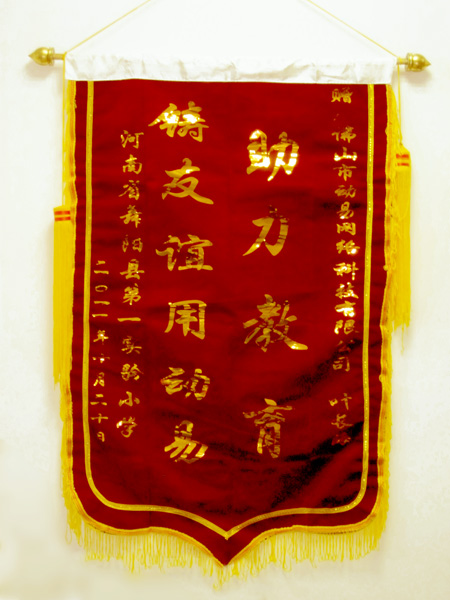 赠:佛山市动易网络科技有限公司 叶长
助力教育
铸友谊用动易
河南省舞阳县第一实验小学
二〇一一年十月二十日